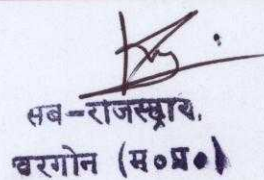 सब-राजस्ट्रार,
खरगोन (म०प्र०)